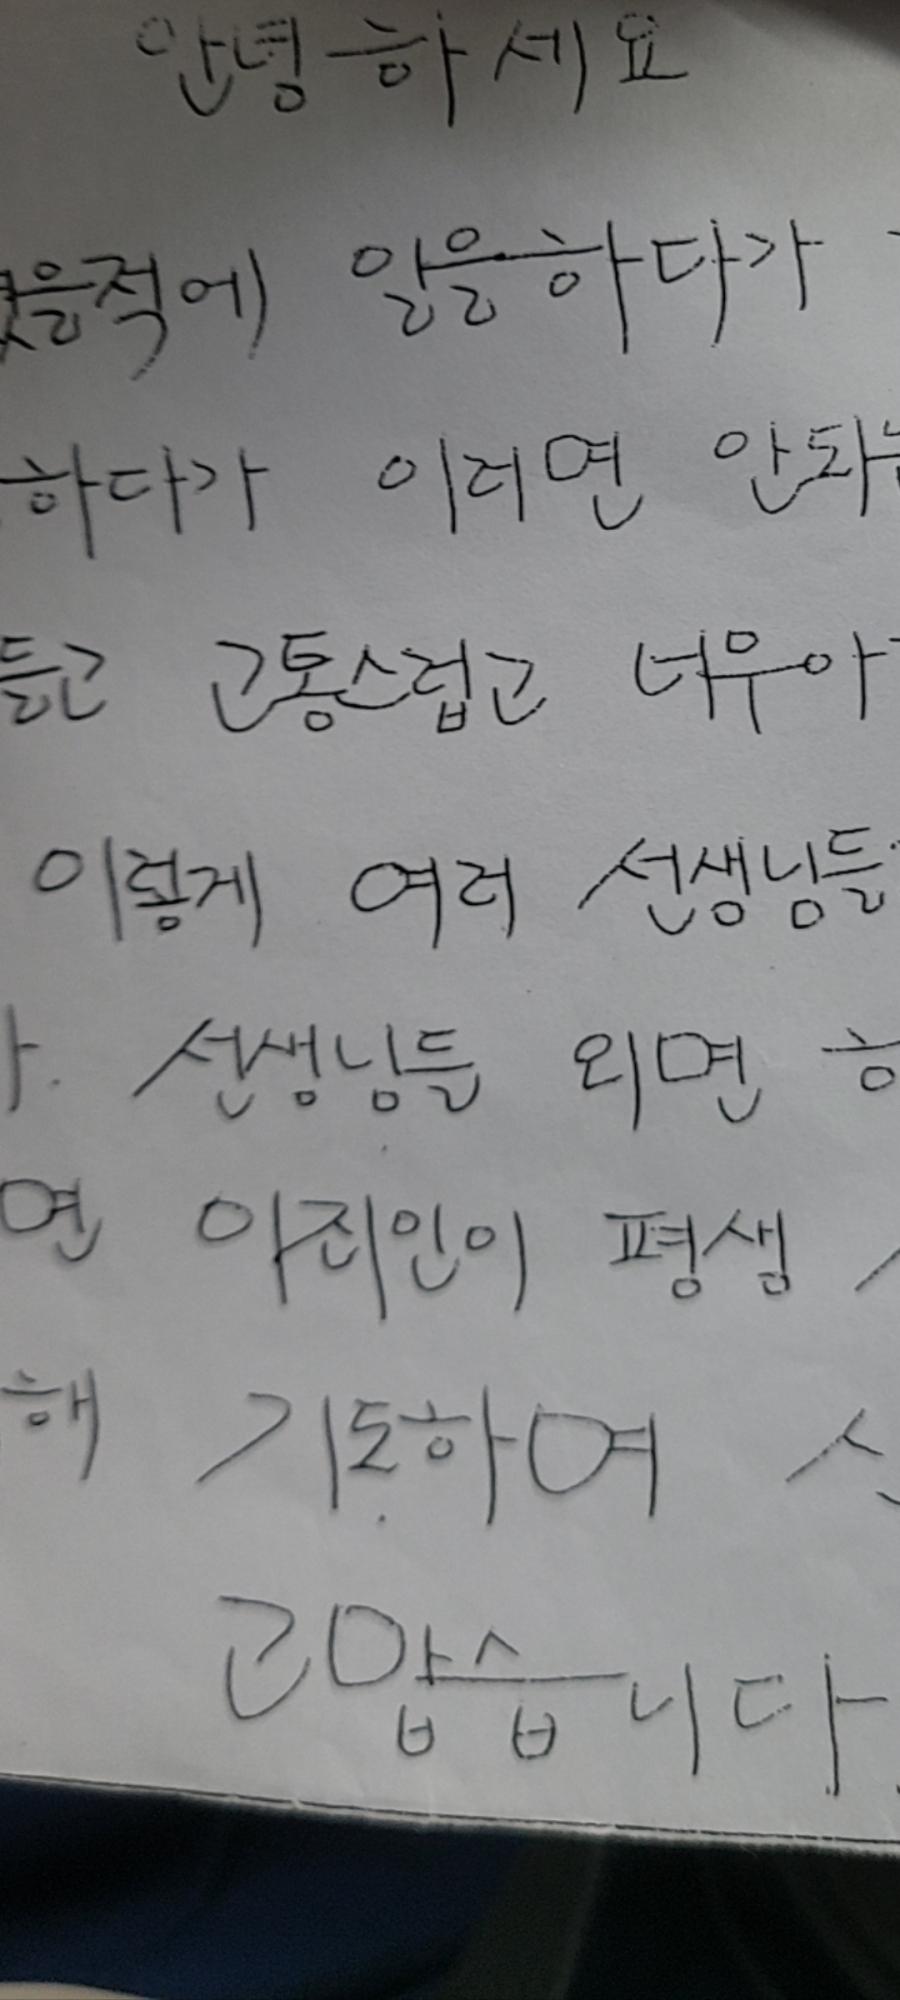 안녕하세요
을적에 일을하다가
하다가 이러면 안되
들고 고통스럽고 너무아
이렇게 여러 선생님들
선생님들 외면
면 이죄인이 평생
해 기도하여
고맙습니다.